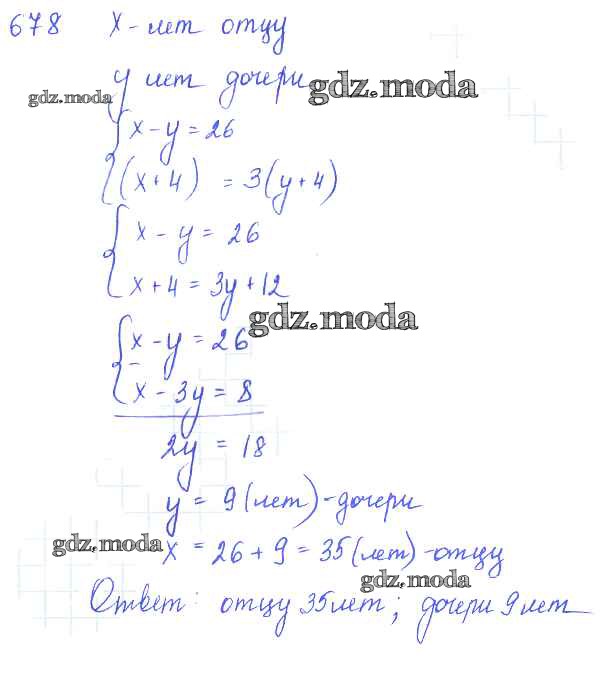 678 х - лет отцу
у лет дочери gdz.moda
gdz.moda
х - у = 26
(х + 4) = 3(у + 4)
х - у = 26
х + 4 = 3у + 12
gdz.moda
х - у = 26
-
х - 3у = 8
2у = 18
у = 9 (лет) - дочери
gdz.moda х = 26 + 9 = 35 (лет) - отцу
gdz.moda
Ответ: отцу 35 лет; дочери 9 лет